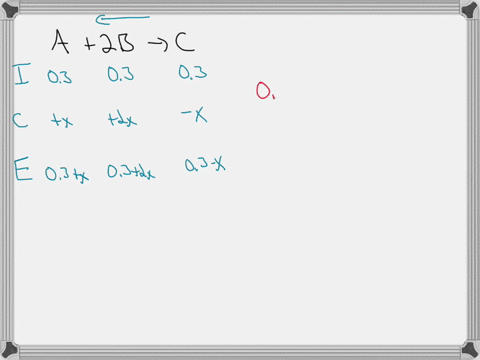 A + 2B → C
I 0.3 0.3 0.3
0.
C +x +2x -x
E 0.3+x 0.3+2x 0.3-x